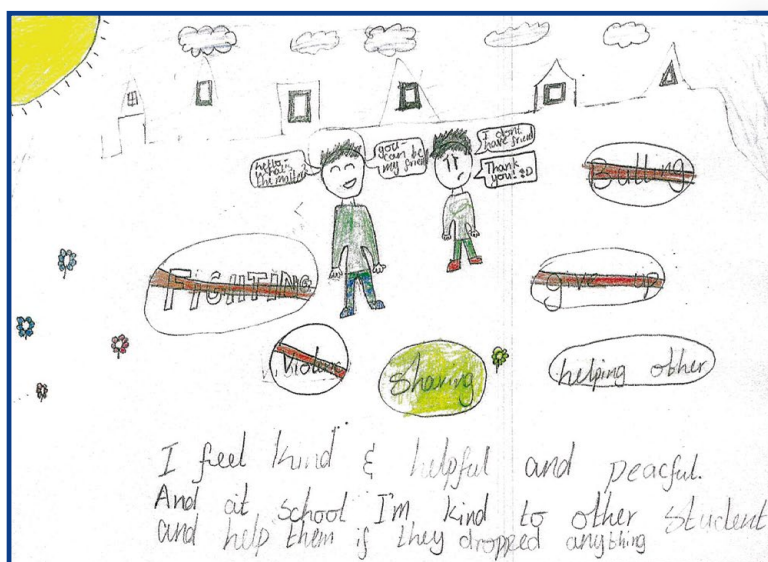 hello
what
the matter
you
can be
my friend
I dont
have friend
Thank
you! :D
Bulling
FIGHTING
give up
Violenc
Sharing
helping other
I feel kind & helpful and peacful.
And at school I'm kind to other student
and help them if they dropped anything